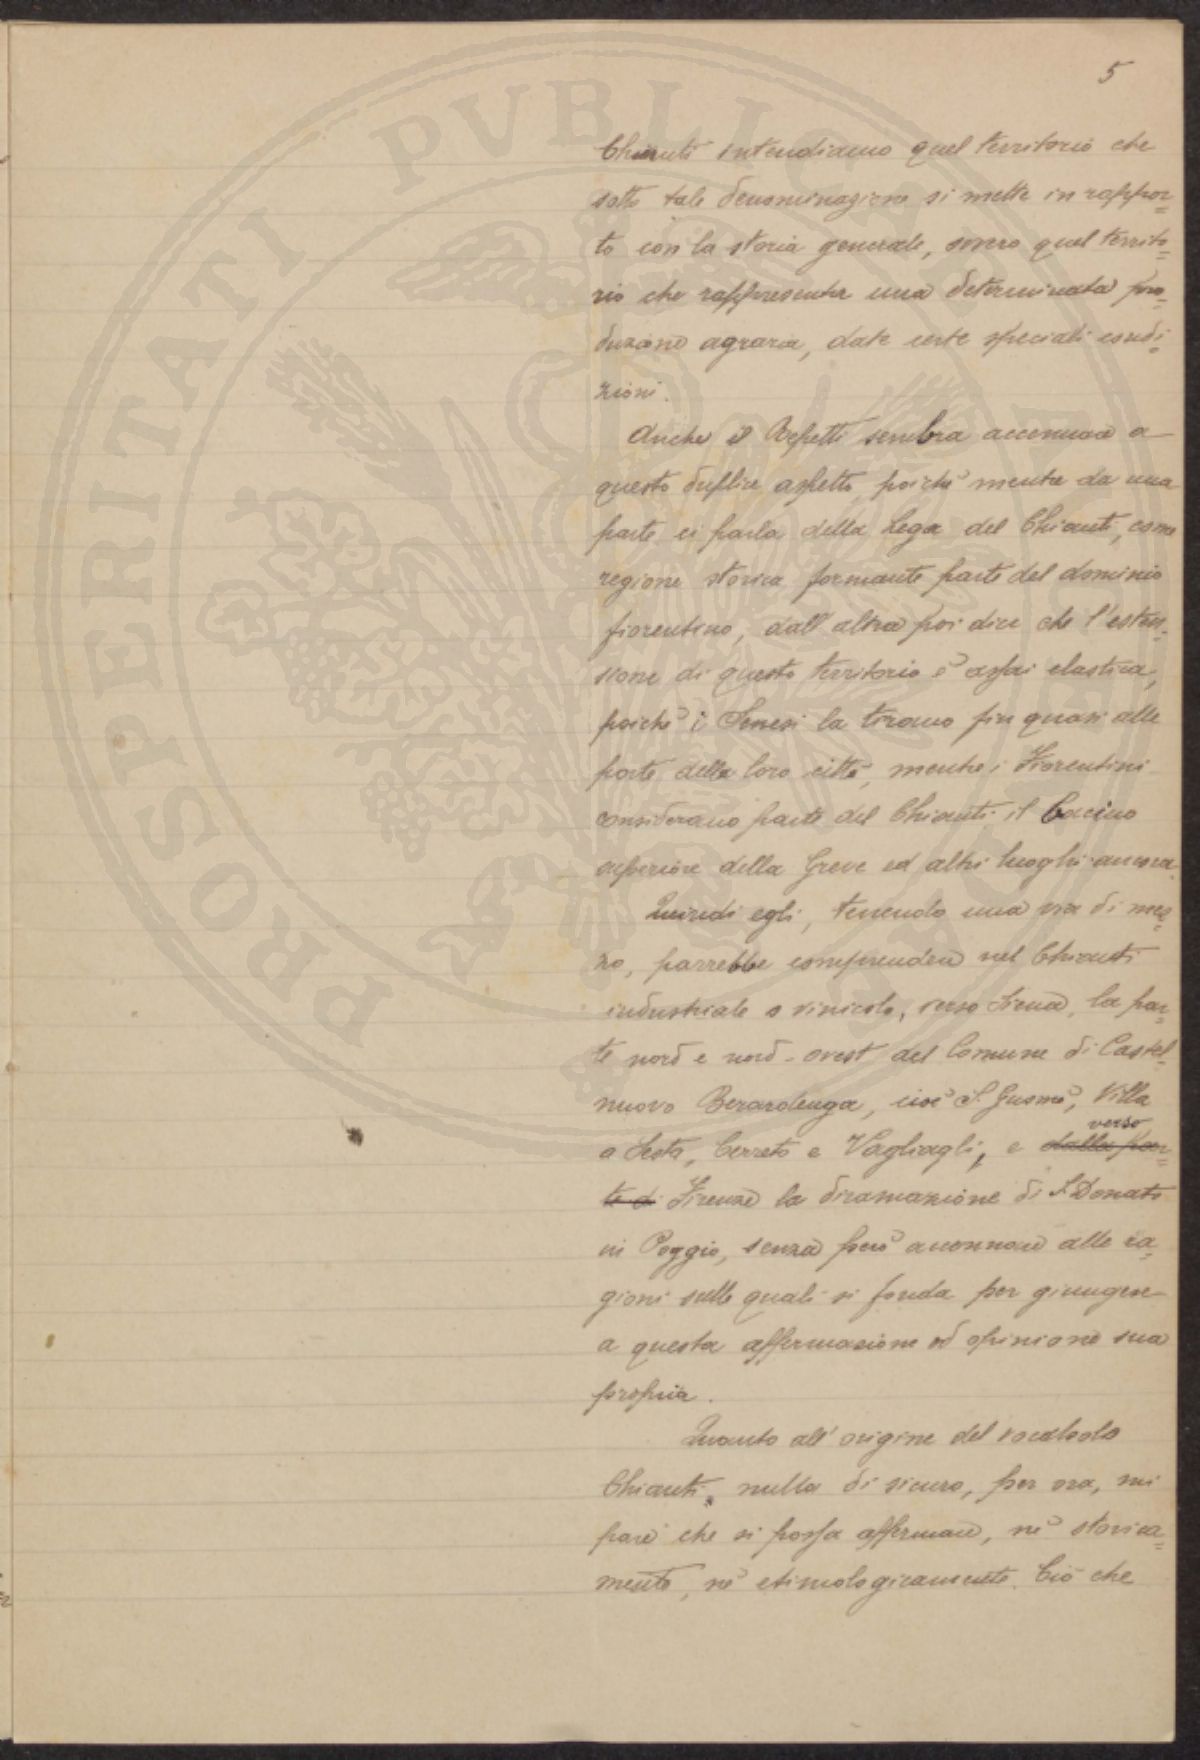 5
Chianti intendiamo quel territorio che
sotto tale denominazione si mette in rappor=
to con la storia generale, ovvero quel territo=
rio che rappresenta una determinata pro=
duzione agraria, date certe speciali condi=
zioni.
Anche il Repetti sembra accennare a
questo duplice aspetto, poichè mentre da una
parte ci parla della Lega del Chianti, come
regione storica formante parte del dominio
fiorentino, dall'altra poi dice che l'esten=
sione di questo territorio è assai elastica,
poichè i Senesi la tirano fin quasi alle
porte della loro città, mentre i Fiorentini
considerano parte del Chianti il bacino
superiore della Greve ed altri luoghi ancora.
Quindi egli, tenendo una via di mez=
zo, parrebbe comprendere nel Chianti
industriale o vinicolo, verso Siena, la par=
te nord e nord-ovest del Comune di Castel=
nuovo Berardenga, cioè S. Gusmè, Villa
a Sesta, Cerreto e Vagliagli, e dalla par=
verso
te di Firenze la diramazione di S. Donato
in Poggio, senza però accennare alle ra=
gioni sulle quali si fonda per giungere
a questa affermazione ed opinione sua
propria.
Quanto all'origine del vocabolo
Chianti, nulla di sicuro, per ora, mi
pare che si possa affermare, nè storica=
mente, nè etimologicamente. Ciò che
PROSPERITATI PVBLICAE